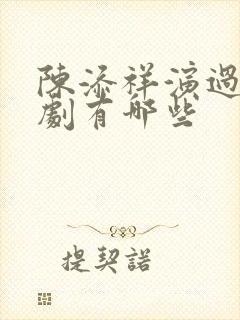 陳添祥演過
劇有哪些
提契諾